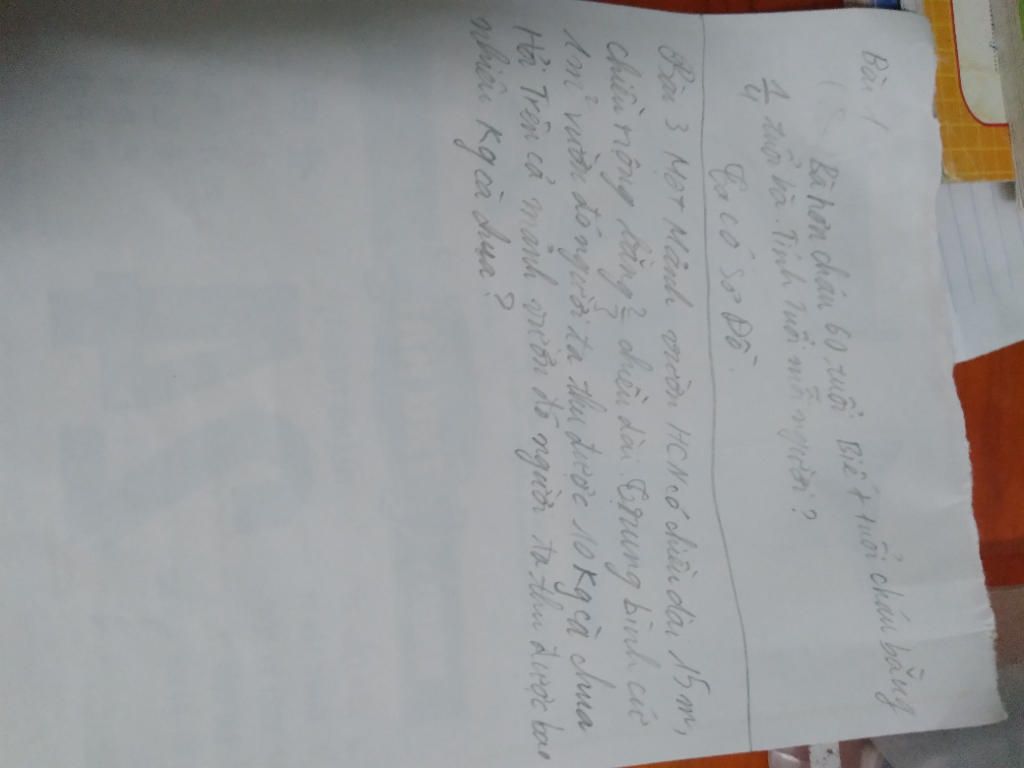 Bài 1
Bà hơn cháu 60 tuổi Biết tuổi cháu bằng
1/4 tuổi bà. Tính tuổi mỗi người?
Ta có sơ Đồ.
Bài 3 Một Mảnh vườn HCN có chiều dài 15m,
chiều rộng bằng chiều dài. Trung bình cứ
1m² vườn đó người ta thu được 10 kg cà chua
Hỏi Trên cả mảnh vườn đó người ta thu được bao
nhiêu kg cà chua?